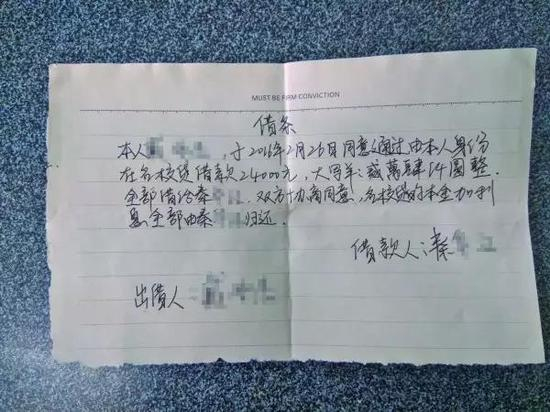 MUST BE FIRM CONVICTION
借条
本人，于2016年2月26日同意通过由本人身份
在名校贷借款24000元，大写：贰萬肆仟圆整．
全部借给秦，双方协商同意，名校贷的本金加利
息全部由秦归还．
借款人：秦江
出借人：